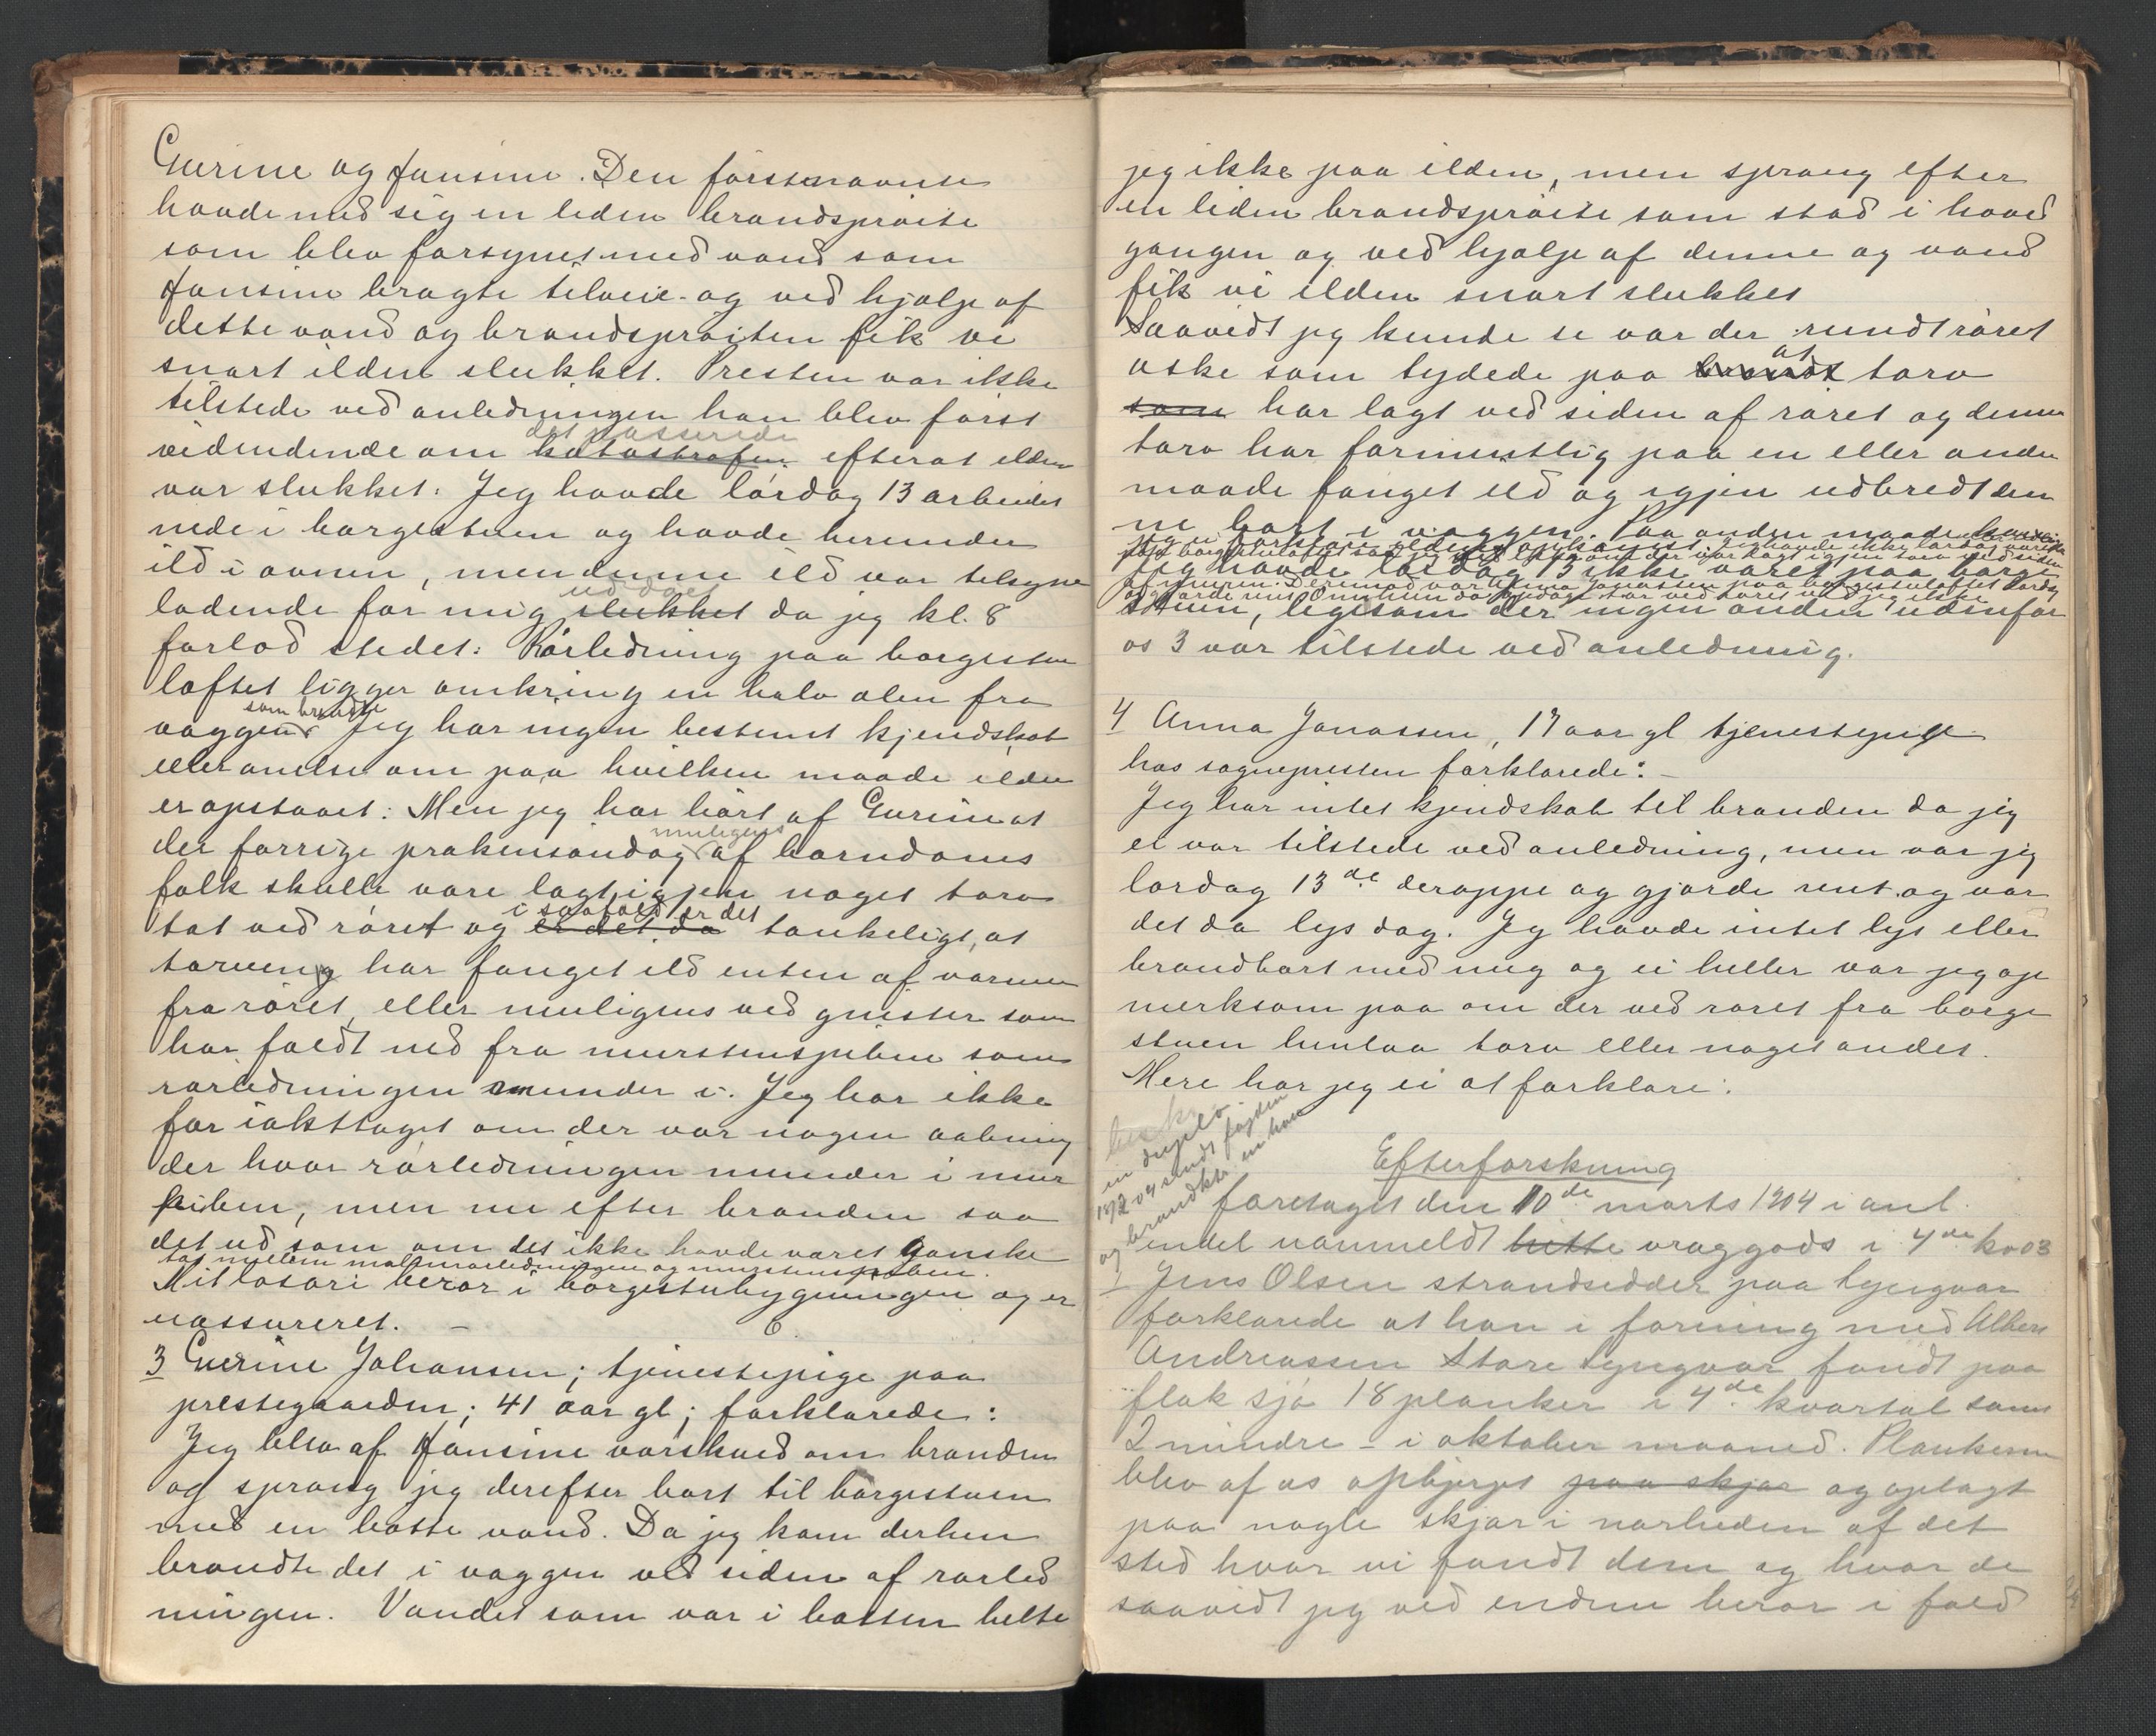 Gurine og Hansine. Den førstnævnte
havde med sig en liden brandsprøite
som blev forsynet med vand som
Hansine bragte tilveie og ved hjælp af
dette vand og brandsprøiten fik vi
snart ilden slukket. Presten var ikke
tilstede ved anledningen han blev først
det passerede
videndende om katastrofen efterat ilden
var slukket. Jeg havde lørdag 13 arbeidet
nede i borgestuen og havde herunder
ild i ovnen, men denne ild var tilsyne
uddøet
ladende for mig slukket da jeg kl. 8
forlod stedet. Rørledning paa borgestue
loftet ligger omkring en halv alen fra
som brændte
væggen. Jeg har ingen bestemt kjendskab
eller anelse om paa hvilken maade ilden
er opstaaet. Men jeg har hørt af Gurine at
muligens
der forrige prækensøndag af barndoms
folk skulle være lagt igjen noget torv
i saafald er det
tæt ved røret og er det da tænkeligt, at
torven har fanget ild enten af varmen
fra røret eller muligens ved gnister som
har faldt ned fra murstenspiben som
rørledningen munder i. Jeg har ikke
før iakttaget om der var nogen aabning
der hvor rørledningen munder i mur
piben, men nu efter branden saa
det ud som om det ikke havde været ganske
tæt mellem rørledningen og murstenspiben.
Mit løsøre beror i borgestubygningen og er
uassureret. –
3 Gurine Johansen; tjenestepige paa
prestegaarden; 41 aar gl; forklarede:
Jeg blev af Hansine varskued om branden
og sprang jeg derefter bort til borgestuen
med en bøtte vand. Da jeg kom derhen
brandte det i væggen ved siden af rørled
ningen. Vandet som var i bøtten helte
jeg ikke paa ilden, men sprang efter
en liden brandsprøite som stod i hoved
gangen og ved hjælp af denne og vand
fik vi ilden snart slukket
Saavidt jeg kunde se var der rundt røret
at
aske som tydede paa brandt torv
som har lagt ved siden af røret og denne
torv har formentlig paa en eller anden
maade fanget ild og igjen udbredt den
ne bort i væggen. Paa anden maade kan ikke
jeg forklare ildens opkomst. Jeg havde ikke lørdag været
Jeg havde lørdag 13 ikke været paa borge
af muren. Derimod var Anna Jonassen paa borgestuloftet lørdag
og gjorde rent. Om hun da
stuen, ligesom der ingen anden udenfor
os 3 var tilstede ved anledning.
4 Anna Jonassen, 17 aar gl tjenestepige
hos sognepresten forklarede: –
Jeg har intet kjendskab til branden da jeg
ei var tilstede ved anledning, men var jeg
lørdag 13de deroppe og gjorde rent og var
det da lys dag. Jeg havde intet lys eller
brandbart med mig og ei heller var jeg op
merksom paa om der ved røret fra borge
stuen henlaa torv eller noget andet.
Mere har jeg ei at forklare.
beskr
en duplo
sendt fogden
og brandk
Efterforskning
foretaget den 10de marts 1904 i anl
endel uanmeldt hitte vraggods i 4de kv 03
1 Jens Olsen strandsidder paa Lyngvær
forklarede at han i forening med Albert
Andreassen Store Lyngvær fandt paa
flak sjø 18 planker i 4de kvartal samt
2 mindre – i oktober maaned. Plankerne
blev af os opbjerget paa skjær og oplagt
paa nogle skjær i nærheden af det
sted hvor vi fandt dem og hvor de
saavidt jeg ved endnu beror i fald